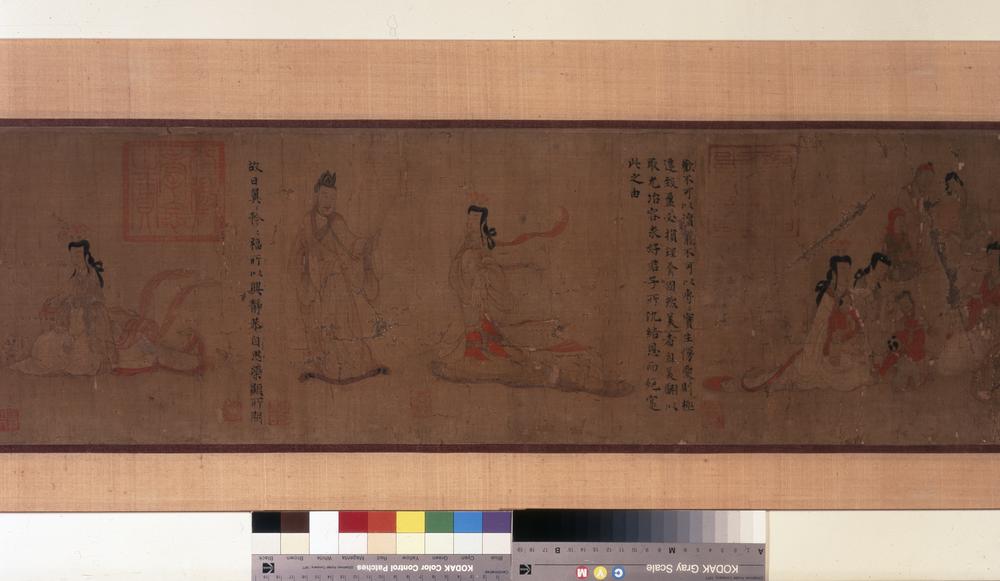 歡不可以瀆寵不可以專〻實生慢愛則極
遷致盈必損理有固然美者自美翩以
取尤冶容求好君子所仇結恩而絕寔
此之由
故曰翼〻矜〻福所以興靜恭自思榮顯所期
KODAK Color Control Patches
Blue Cyan Green Yellow Red Magenta White Brown Black
KODAK Gray Scale
C Y M
A 1 2 3 4 5 6 M 8 9 10 11 12 13 14 15 B 17 18 19